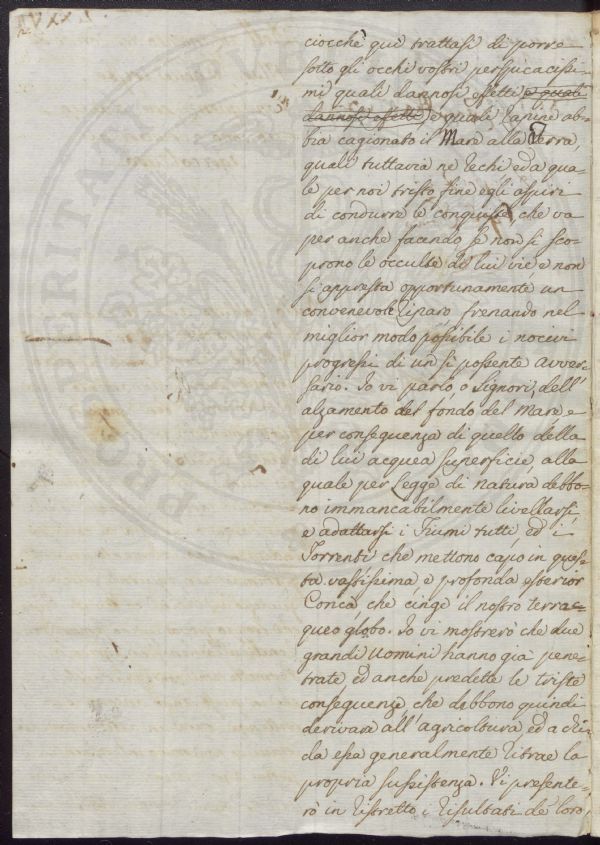 ciocchè quì trattasi di porre
sotto gli occhi vostri perspicacissi=
mi quali dannosi effetti e quali
dannosi effetti e quale rapine ab=
bia cagionato il Mare alla Terra,
quali tuttavia ne rechi ed a qua=
le per noi tristo fine egli aspiri
di condurre le conquiste, che va
per anche facendo, se non si sco=
prono le occulte di lui vie e non
si appresta opportunamente un
convenevole riparo, frenando nel
miglior modo possibile i nocivi
progressi di un sì possente avver=
sario. Io vi parlo, o Signori, dell'
alzamento del fondo del Mare e
per conseguenza di quello della
di lui acquea superficie, alla
quale per Legge di natura debbo=
no immancabilmente livellarsi,
e adattarsi i Fiumi tutti, ed i
Torrenti che mettono capo in ques=
ta vastissima, e profonda esterior
Conca, che cinge il nostro terrac=
queo globo. Io vi mostrerò che due
grandi uomini hanno già pene=
trate ed anche predette le triste
conseguenze che debbono quindi
derivare all'agricoltura ed a chi
da essa generalmente ritrae la
propria sussistenza. Vi presente=
rò in ristretto i risultati de' loro
PROSPERITATI PUB